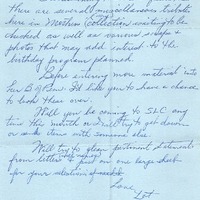 There are several miscellaneous tributes
here in Mothers Collection waiting to be
checked as well as various scraps &
photos that may add interest to the
birthday program planned.
Before entering more material into
our B of Rem. I'd like you to have a chance
to look these over.
Will you be coming to SLC any
time this month or shall I try to get down
or send items with someone else.
Will try to glean pertinent statements
from letters & put on one large sheet
for your selection if needed
Love,